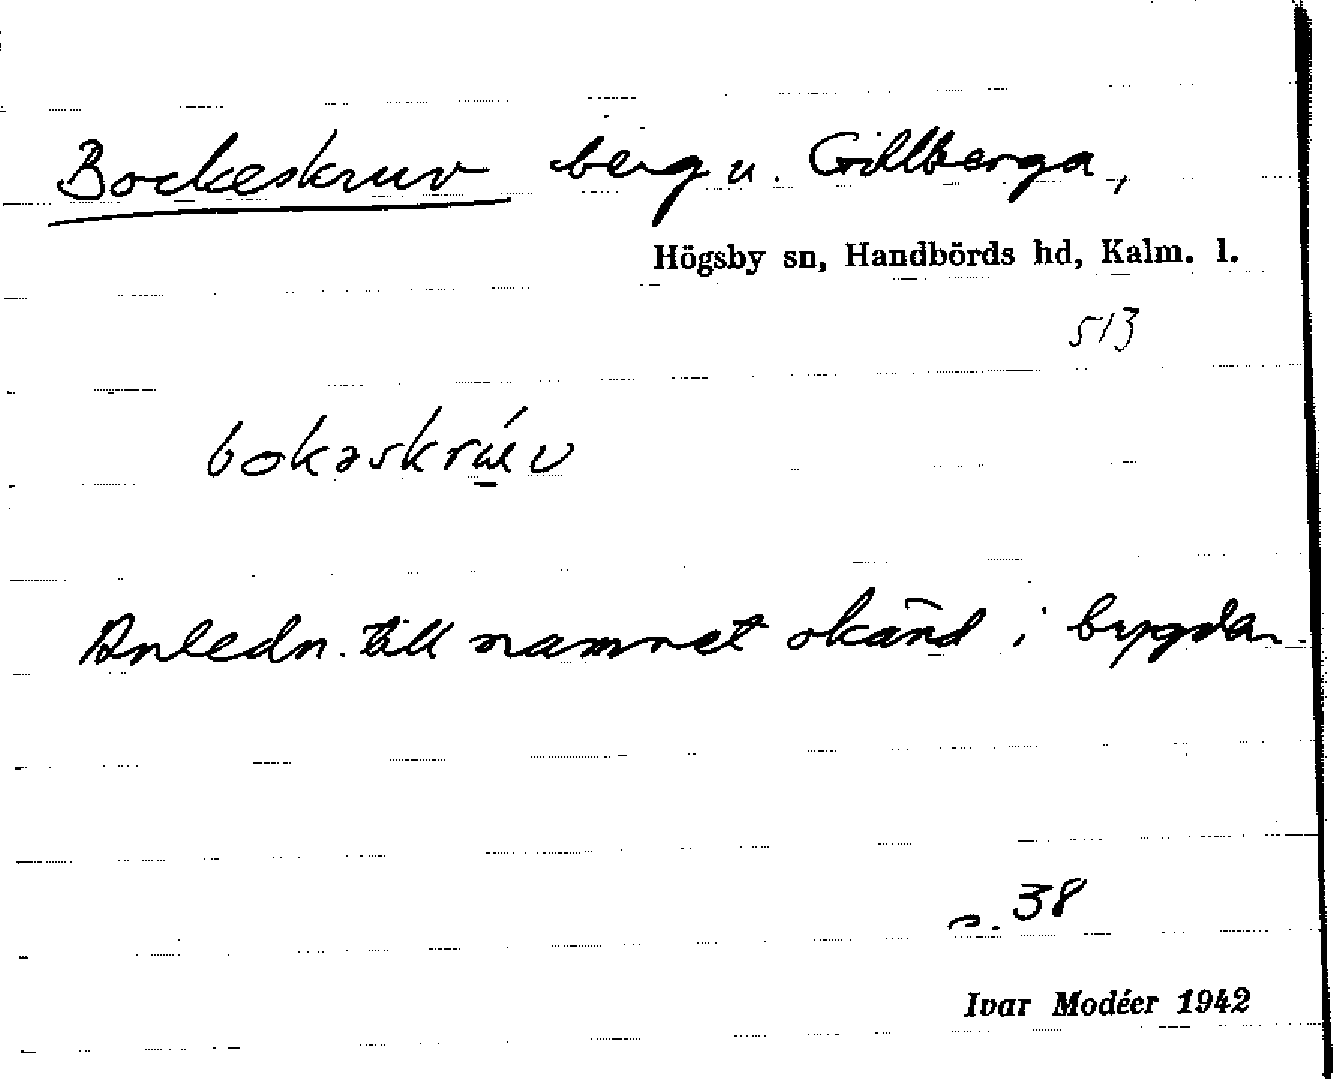 Bockeskruv berg u. Gillberga,
Högsby sn, Handbörds hd, Kalm. l.
513
bokəskrúv
Anledn. till namnet okänd i bygden
s. 38
Ivar Modéer 1942